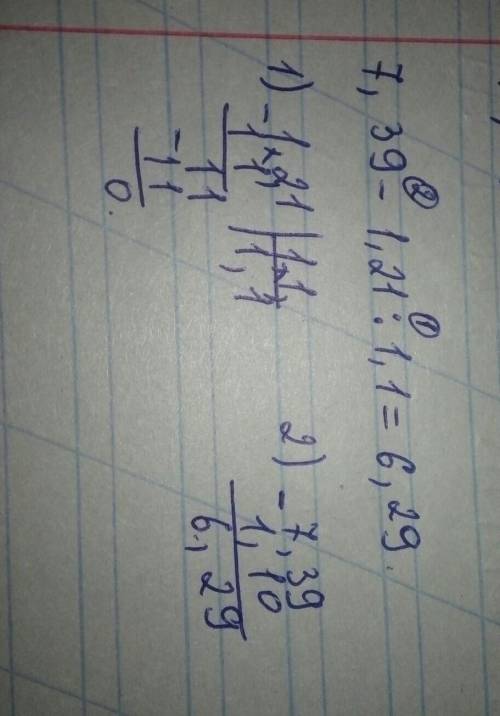 7,39 - 1,21 : 1,1 = 6,29.
1) - 1,21 | 1,1
1 1 | 1,1
11
- 11
0.
2) - 7,39
1,10
6,29